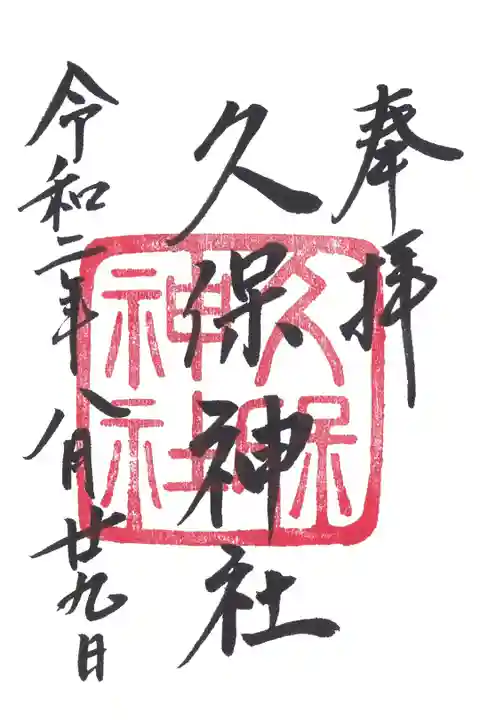 奉拝
久保神社
久保
神社
令和二年八月廿九日